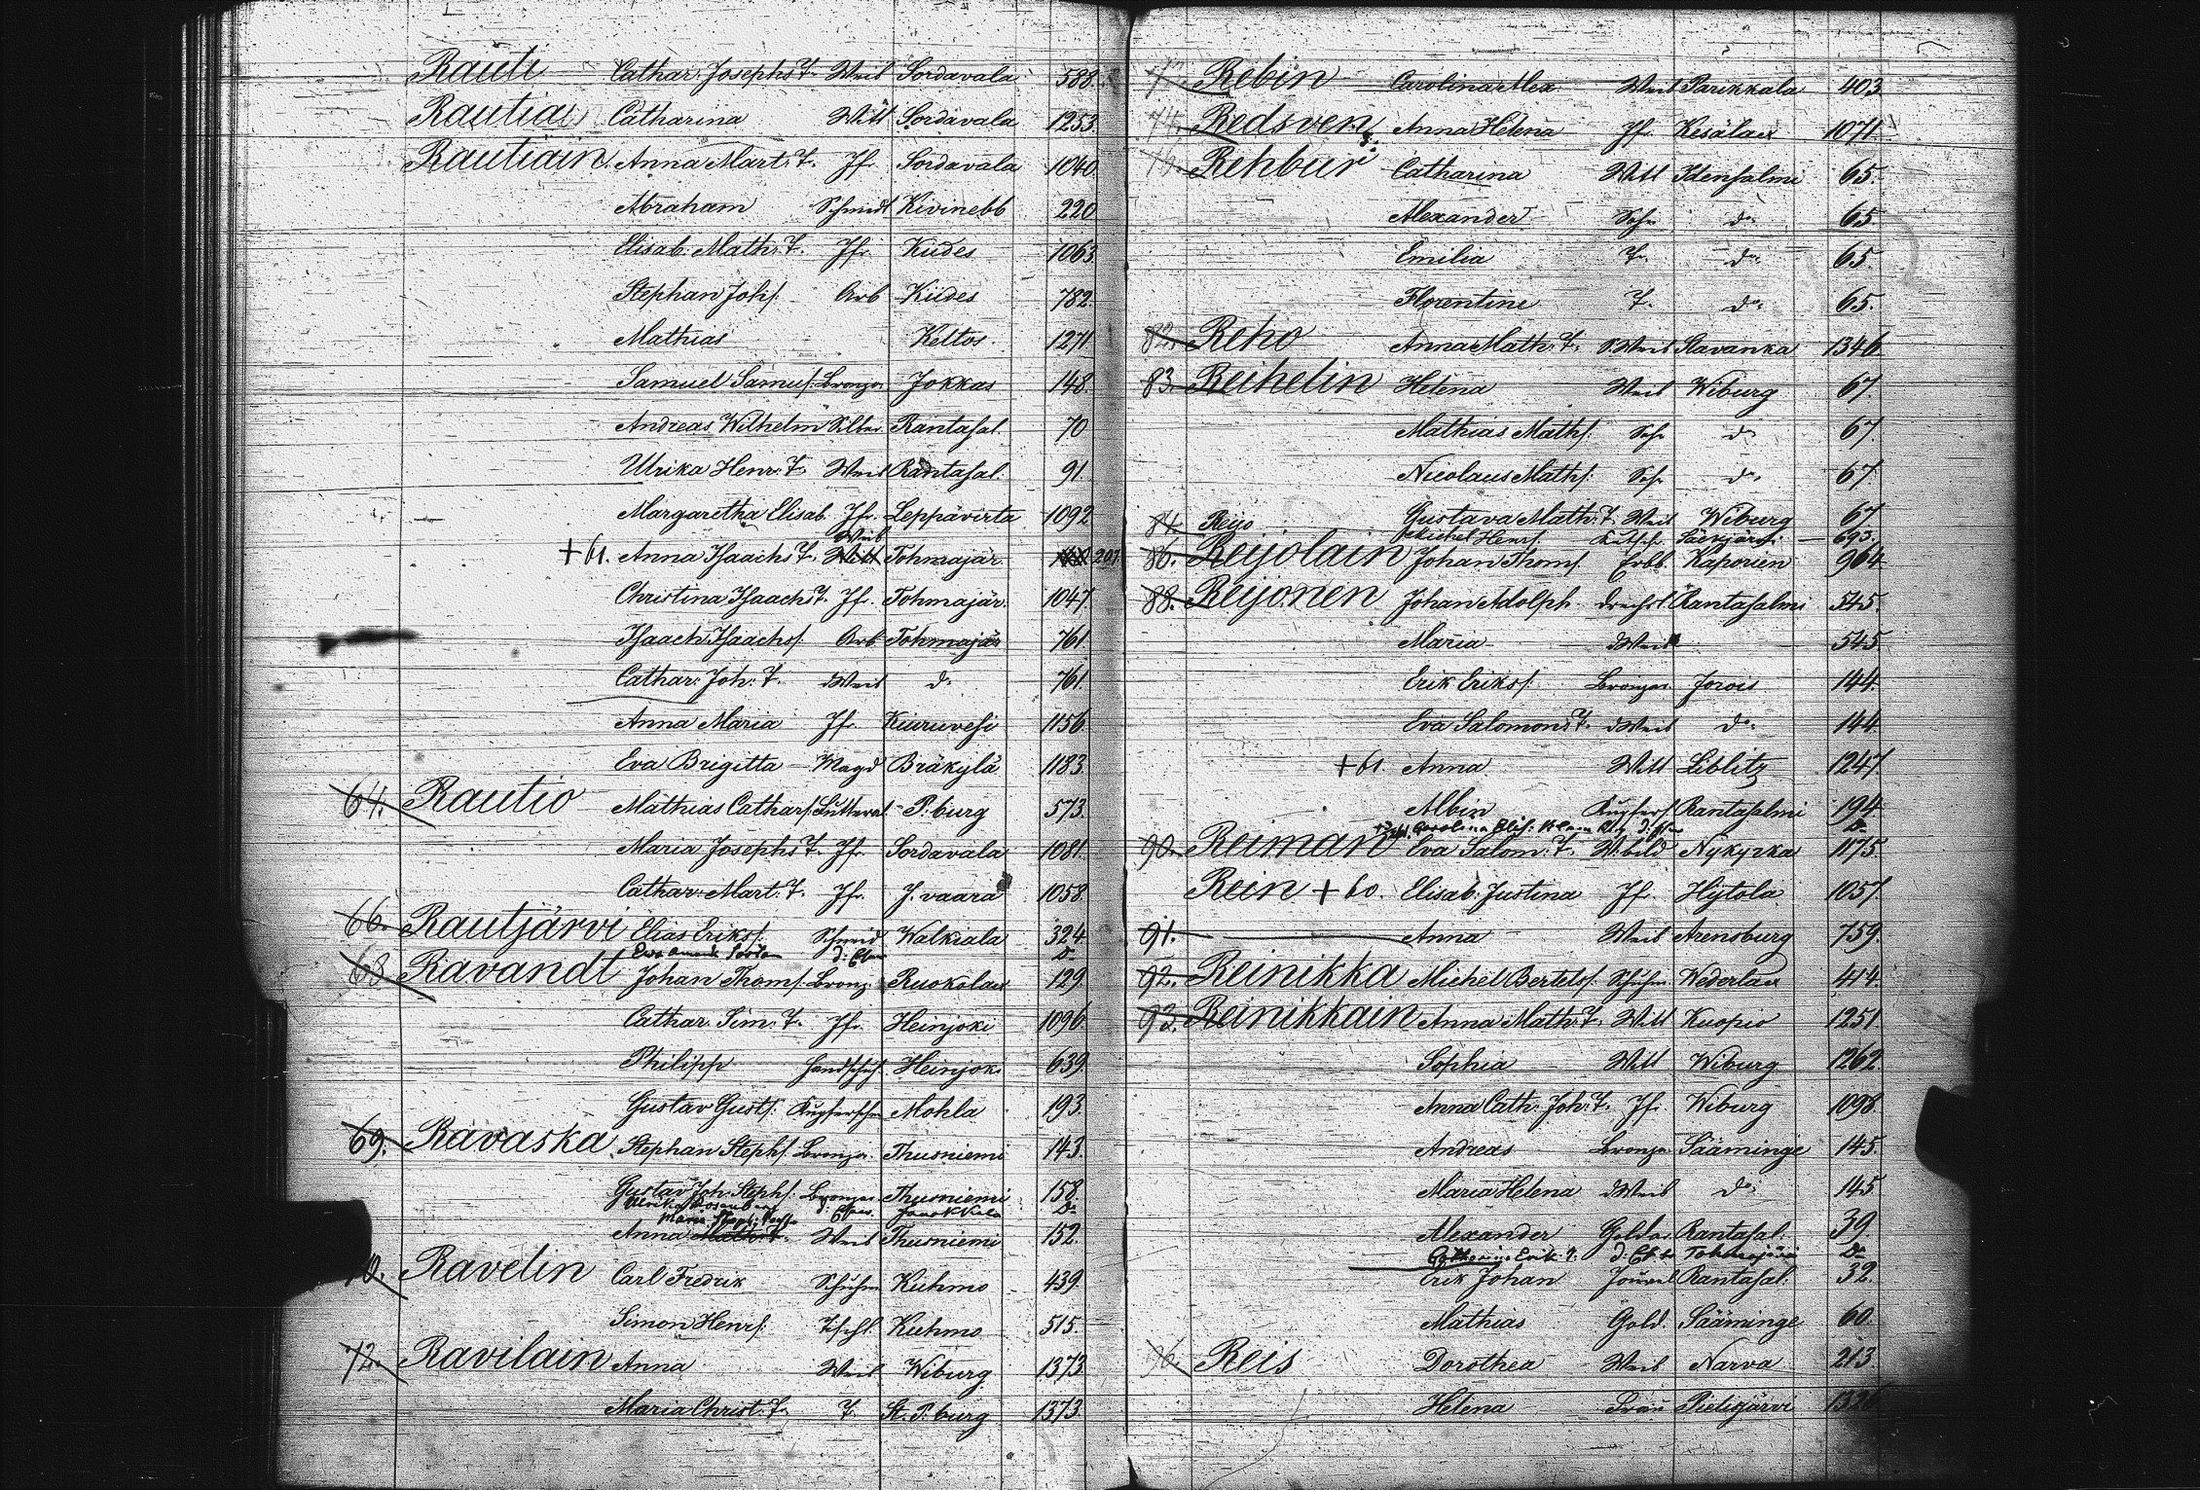 Rauti Cathar. Josephs T. Weib Sordavala 588.
Rautia Catharina Witt Sordavala 1253.
Rautiain Anna Mart. T. Jfr. Sordavala 1040.
Abraham Schmidt Kivinebb 220
Elisab. Math. T. Jfr. Kides 1063.
Stephan Johs. Arb Kides 782.
Mathias Keltos 1271.
Samuel Samus. Bronzar Jokkas 148.
Andreas Wilhelm Silber Rantasal. 70
Ulrika Henr. T. Weib Rantasal. 91.
Margaretha Elisab. Jfr. Leppävirta 1092
Weib
+61. Anna Isaachs T. Witt Tohmajär. 201.
Christina Isaachs T. Jfr. Tohmajär. 1047.
Isaach Isaachs. Arb Tohmajär 761.
Cathar. Joh. T. dWeib d. 761.
Anna Maria Jfr. Kiuruvesi 1156.
Eva Brigitta Magd Bräkylä 1183.
64. Rautio Mathias Cathars. P. burg 573.
Maria Josephs T. Jfr. Sordavala 1081.
Cathar. Mart. T. Jfr. J. vaara 1058.
66. Rautjärvi Elias Eriks. Schmid Walkiala 324.
68. Ravandt Johan Thoms. Bronz. Ruokolax 129.
Cathar. Sim. T. Jfr. Heinjoki 1096.
Philipp Handschuh Heinjoki 639.
Gustav Gusts. Kupferschm Mohla 193.
69. Ravaska Stephan Stephs. Bronza. Thusniemi 143.
Gustav Joh. Stephs. Bronzar Thusniemi 158.
Anna Math. T. Weib Thusniemi 152.
70. Ravelin Carl Fredrik Schuhm Kuhmo 439.
Simon Henrs. Tischl. Kuhmo 515.
72. Ravilain Anna Weib Wiburg 1373.
Maria Christ. T. T. St. P. burg 1373.
Rebin Carolina Alex. Weib Parikkala 403.
74. Redsven Anna Helena Jfr. Kesälax 1071.
Rehbur Catharina Witt Idensalmi 65.
Alexander Sohn do. 65.
Emilia T. do. 65.
Florentine T. do. 65.
82. Reho Anna Math. T. SWeib Slavanka 1346.
83. Reihelin Helena Weib Wiburg 67.
Mathias Maths. Sohn do. 67.
Nicolaus Maths. Sohn do. 67.
84. Reijo Gustava Math. T. Weib Wiburg 67
Michel Henrs. Kutsch. 693.
86. Reijolain Johan Thoms. Erbb. Kaporien 964.
88. Reijonen Johan Adolph Drechsl. Rantasalmi 545.
Maria dWeib 545.
Erik Eriks. Bronzar Jorois 144.
Eva Salomons T. dWeib do. 144.
+61 Anna Witt Liblitz 1247.
Albin Kupfers Rantasalmi 194.
90. Reiman Eva Salom. T. Nykyrka 1175.
Rein +60. Elisab. Justina Jfr. Hijtola 1057.
91. Anna Weib Arensburg 759.
92. Reinikka Michel Bertels. Schuhm. Wederlax 414.
93. Reinikkain Anna Math. T. Witt Kuopio 1251.
Sophia Witt Wiburg 1262.
Anna Cath. Joh. T. Jfr. Wiburg 1098.
Andreas Bronza Sääminge 145.
Maria Helena dWeib do. 145
Alexander Goldar Rantasal. 39.
Catharina Erik. T. d: Tohmajärvi Do
Erik Johan Jouvel Rantasal. 32.
Mathias Gold. Sääminge 60.
96. Reis Dorothea Weib Narva 213
Helena Pieligjärvi 1326